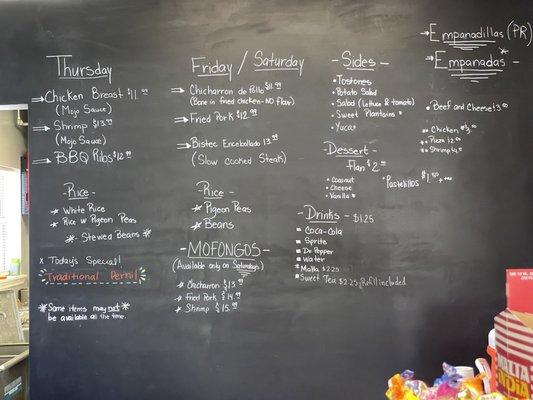 Thursday
Chicken Breast $11.99
(Mojo Sauce)
Shrimp $13.99
(Mojo Sauce)
BBQ Ribs $12.99
- Rice -
White Rice
Rice w Pigeon Peas
- Stewed Beans
x Today's Special!
Traditional Pernil
Some items may not
be available all the time.
Friday / Saturday
Chicharron de Pollo $11.99
(Bone in fried chicken - NO flour)
Fried Pork $12.99
Bistec Encebollado 13.99
(Slow cooked Steak)
Rice -
Pigeon Peas
Beans
- MOFONGOS -
(Available only on Saturdays)
Chicharron $13.99
Fried Pork $14.99
Shrimp $15.99
- Sides -
Tostones
Potato Salad
Salad (Lettuce & tomato)
Sweet Plantains
Yuca
Dessert -
Flan $2.00
Coconut
Cheese
Vanilla
- Drinks - $1.25
Coca-Cola
Sprite
Dr Pepper
Water
Malta 2.25
Sweet Tea $2.25, Refill included
- Empanadillas (PR)
- Empanadas -
Beef and Cheese $3.00
Chicken
Pizza
Shrimp
Pastelillos $1.50
MALTA
INDIA